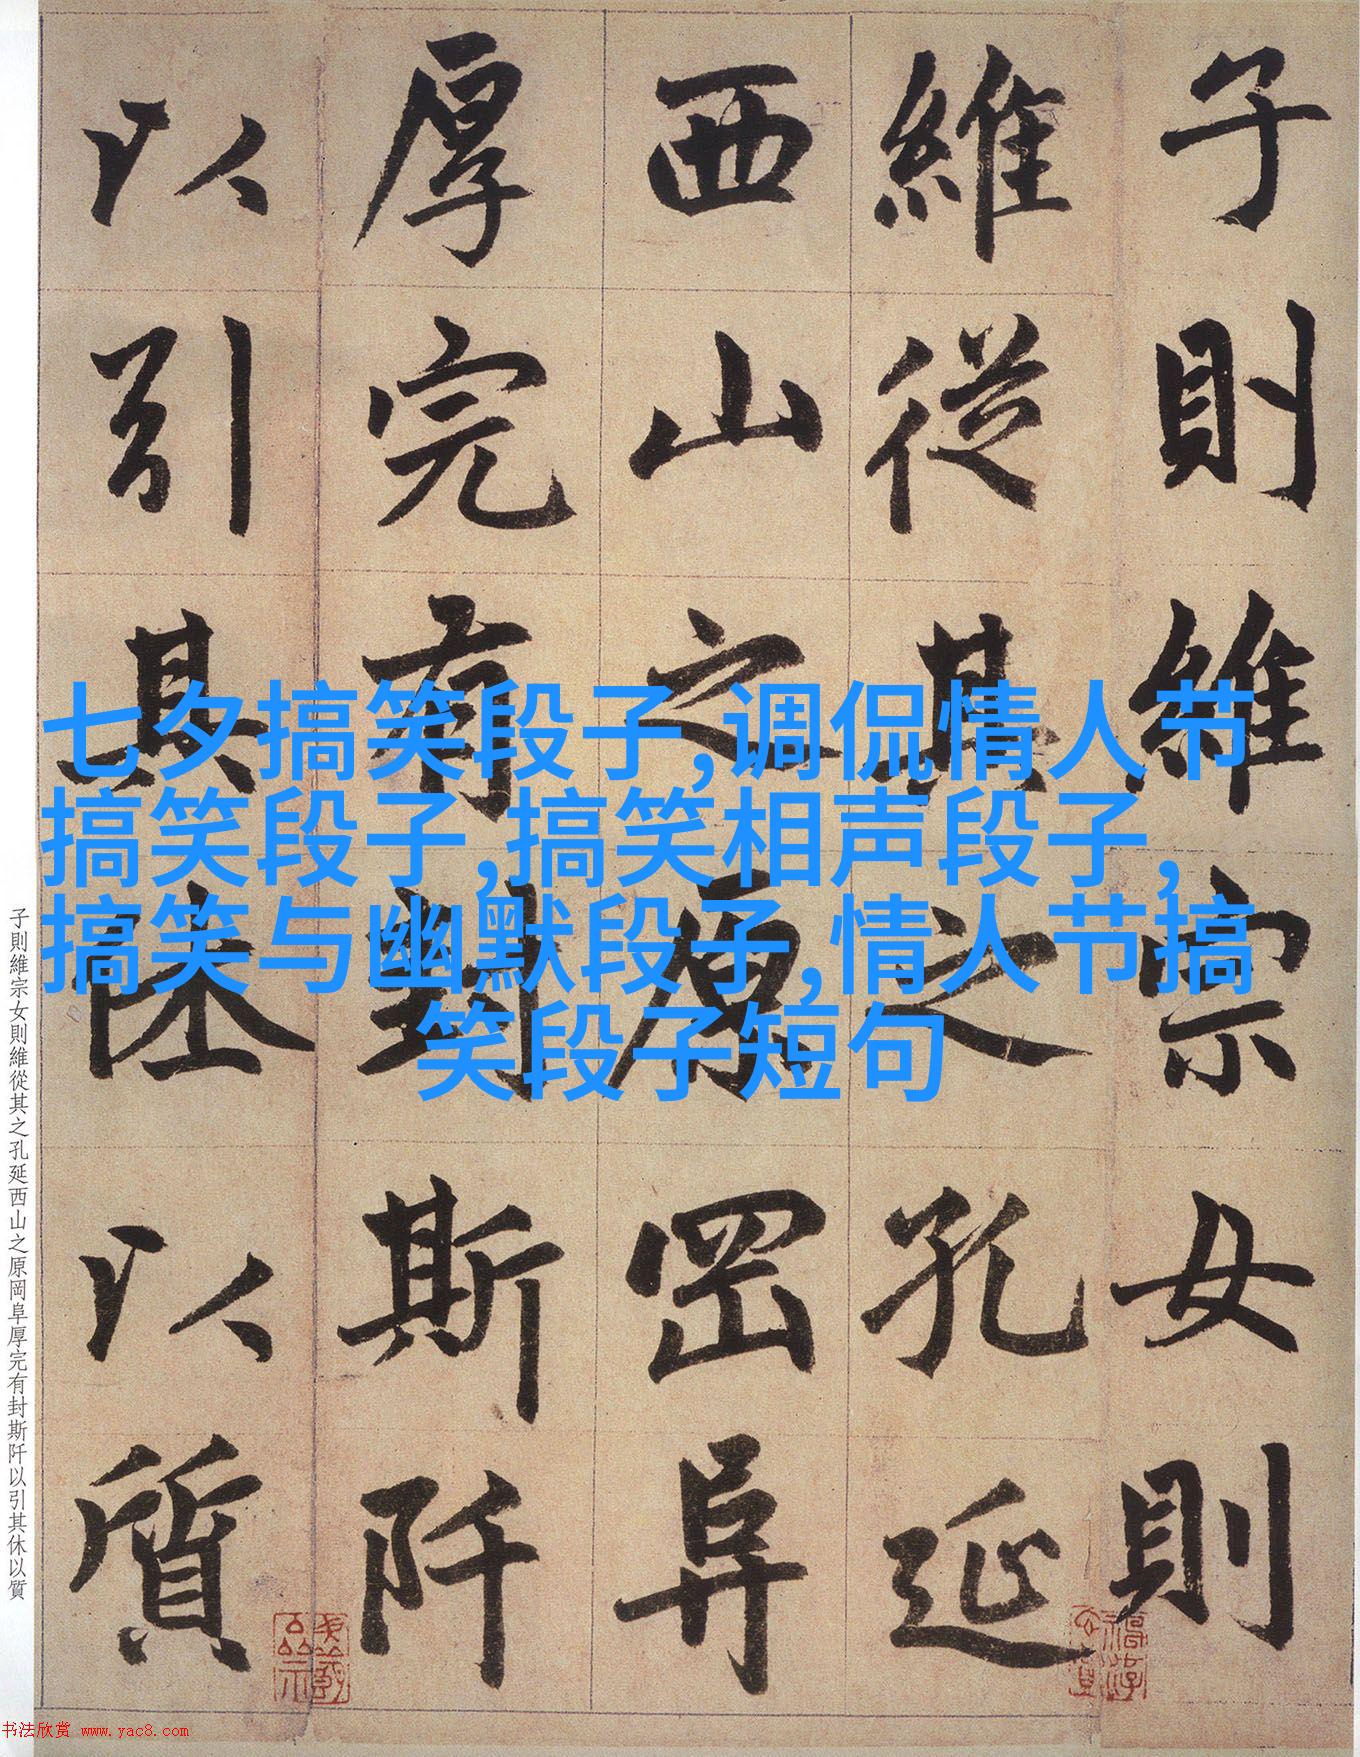 子則維宗女則
維從其之孔延
西山之原岡阜
厚完有封斯阡
以引其休以質
七夕搞笑段子,调侃情人节
搞笑段子,搞笑相声段子,
搞笑与幽默段子,情人节搞
笑段子短句
子則維宗女則維從其之孔延西山之原岡阜厚完有封斯阡以引其休以質
书法欣赏 www.yac8.com